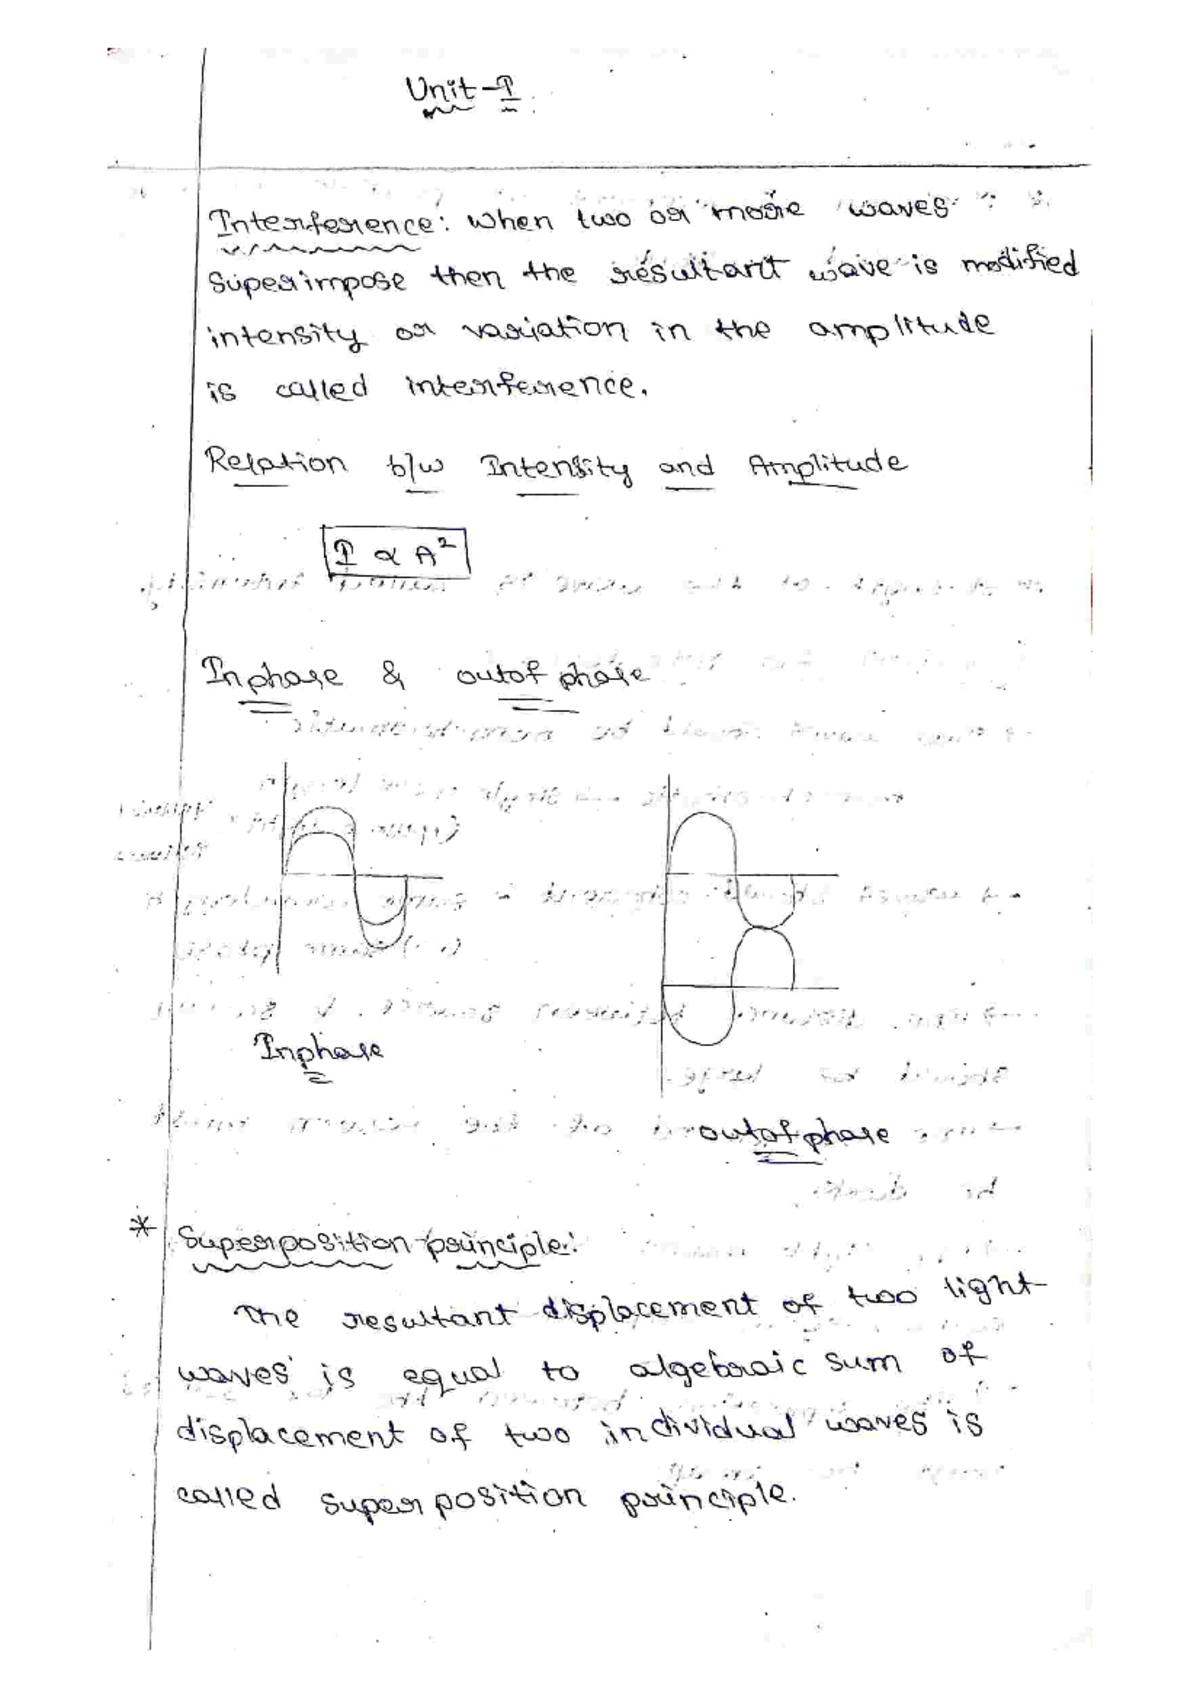 Unit-I
Interference: When two or more waves
Superimpose then the resultant wave is modified
intensity or variation in the amplitude
is called interference.
Relation b/w Intensity and Amplitude
I ∝ A²
Inphase & outof phase
Inphase
outofphase
* Superposition principle:
The resultant displacement of two light
waves is equal to algebraic sum of
displacement of two individual waves is
called superposition principle.